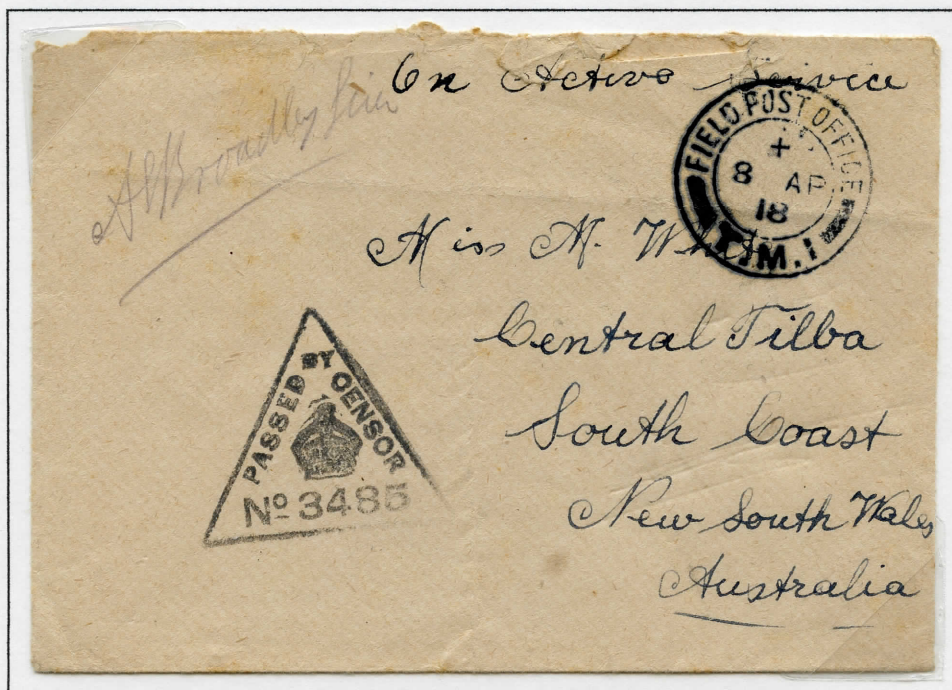 On Active Service
FIELD POST OFFICE
+
8 AP
18
T.M.1
Miss M. White
Central Tilba
South Coast
New South Wales
Australia
PASSED BY CENSOR
Nº 3485